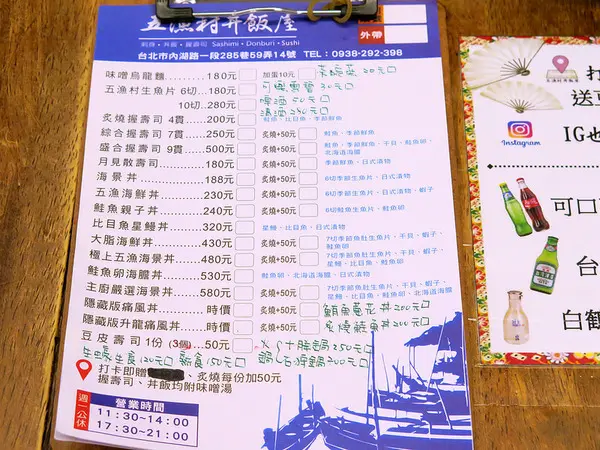 五漁村丼飯屋
刺身・丼飯・握壽司 Sashimi・Donburi・Sushi
外帶
台北市內湖路一段285巷59弄14號 TEL：0938-292-398
味噌烏龍麵 180元 加蛋10元
五漁村生魚片 6切 180元 可樂雪碧 30元
10切 280元 啤酒 50元
清酒 240元
炙燒握壽司 4貫 200元 鮭魚、比目魚、季節鮮魚
綜合握壽司 7貫 250元 炙燒+50元 鮭魚、季節鮮魚
盛合握壽司 9貫 500元 炙燒+50元 鮭魚、季節鮮魚、干貝、鮭魚卵、
北海道海膽
月見散壽司 180元 炙燒+50元 季節鮮魚、日式漬物
海景丼 188元 炙燒+50元 6切季節生魚片、日式漬物
五漁海鮮丼 230元 炙燒+50元 6切季節生魚片、日式漬物、蝦子
鮭魚親子丼 240元 炙燒+50元 6切鮭魚生魚片、鮭魚卵
比目魚星鰻丼 320元 炙燒+50元 星鰻、比目魚、日式漬物
大脂海鮮丼 430元 炙燒+50元 7切季節魚肚生魚片、干貝、蝦子、
鮭魚卵
極上五漁海景丼 480元 炙燒+50元 7切季節魚肚生魚片、干貝、蝦子、
星鰻、比目魚、鮭魚卵
鮭魚卵海膽丼 530元 鮭魚卵、北海道海膽、日式漬物
主廚嚴選海景丼 580元 炙燒+50元 7切季節魚肚生魚片、干貝、蝦子、
星鰻、比目魚、鮭魚卵、北海道海膽
隱藏版痛風丼 時價 炙燒+50元 鮪魚蔥花丼 200元
隱藏版升龍痛風丼 時價 炙燒+50元 炙燒鮭魚丼 200元
豆皮壽司 1份 (3個) 50元
生蠔生食120元 熟食150元
打卡即贈 炙燒每份加50元
握壽司、丼飯均附味噌湯
週一公休
營業時間
11:30-14:00
17:30-21:00
打
送豆
Instagram
IG也
可口
台
白鶴